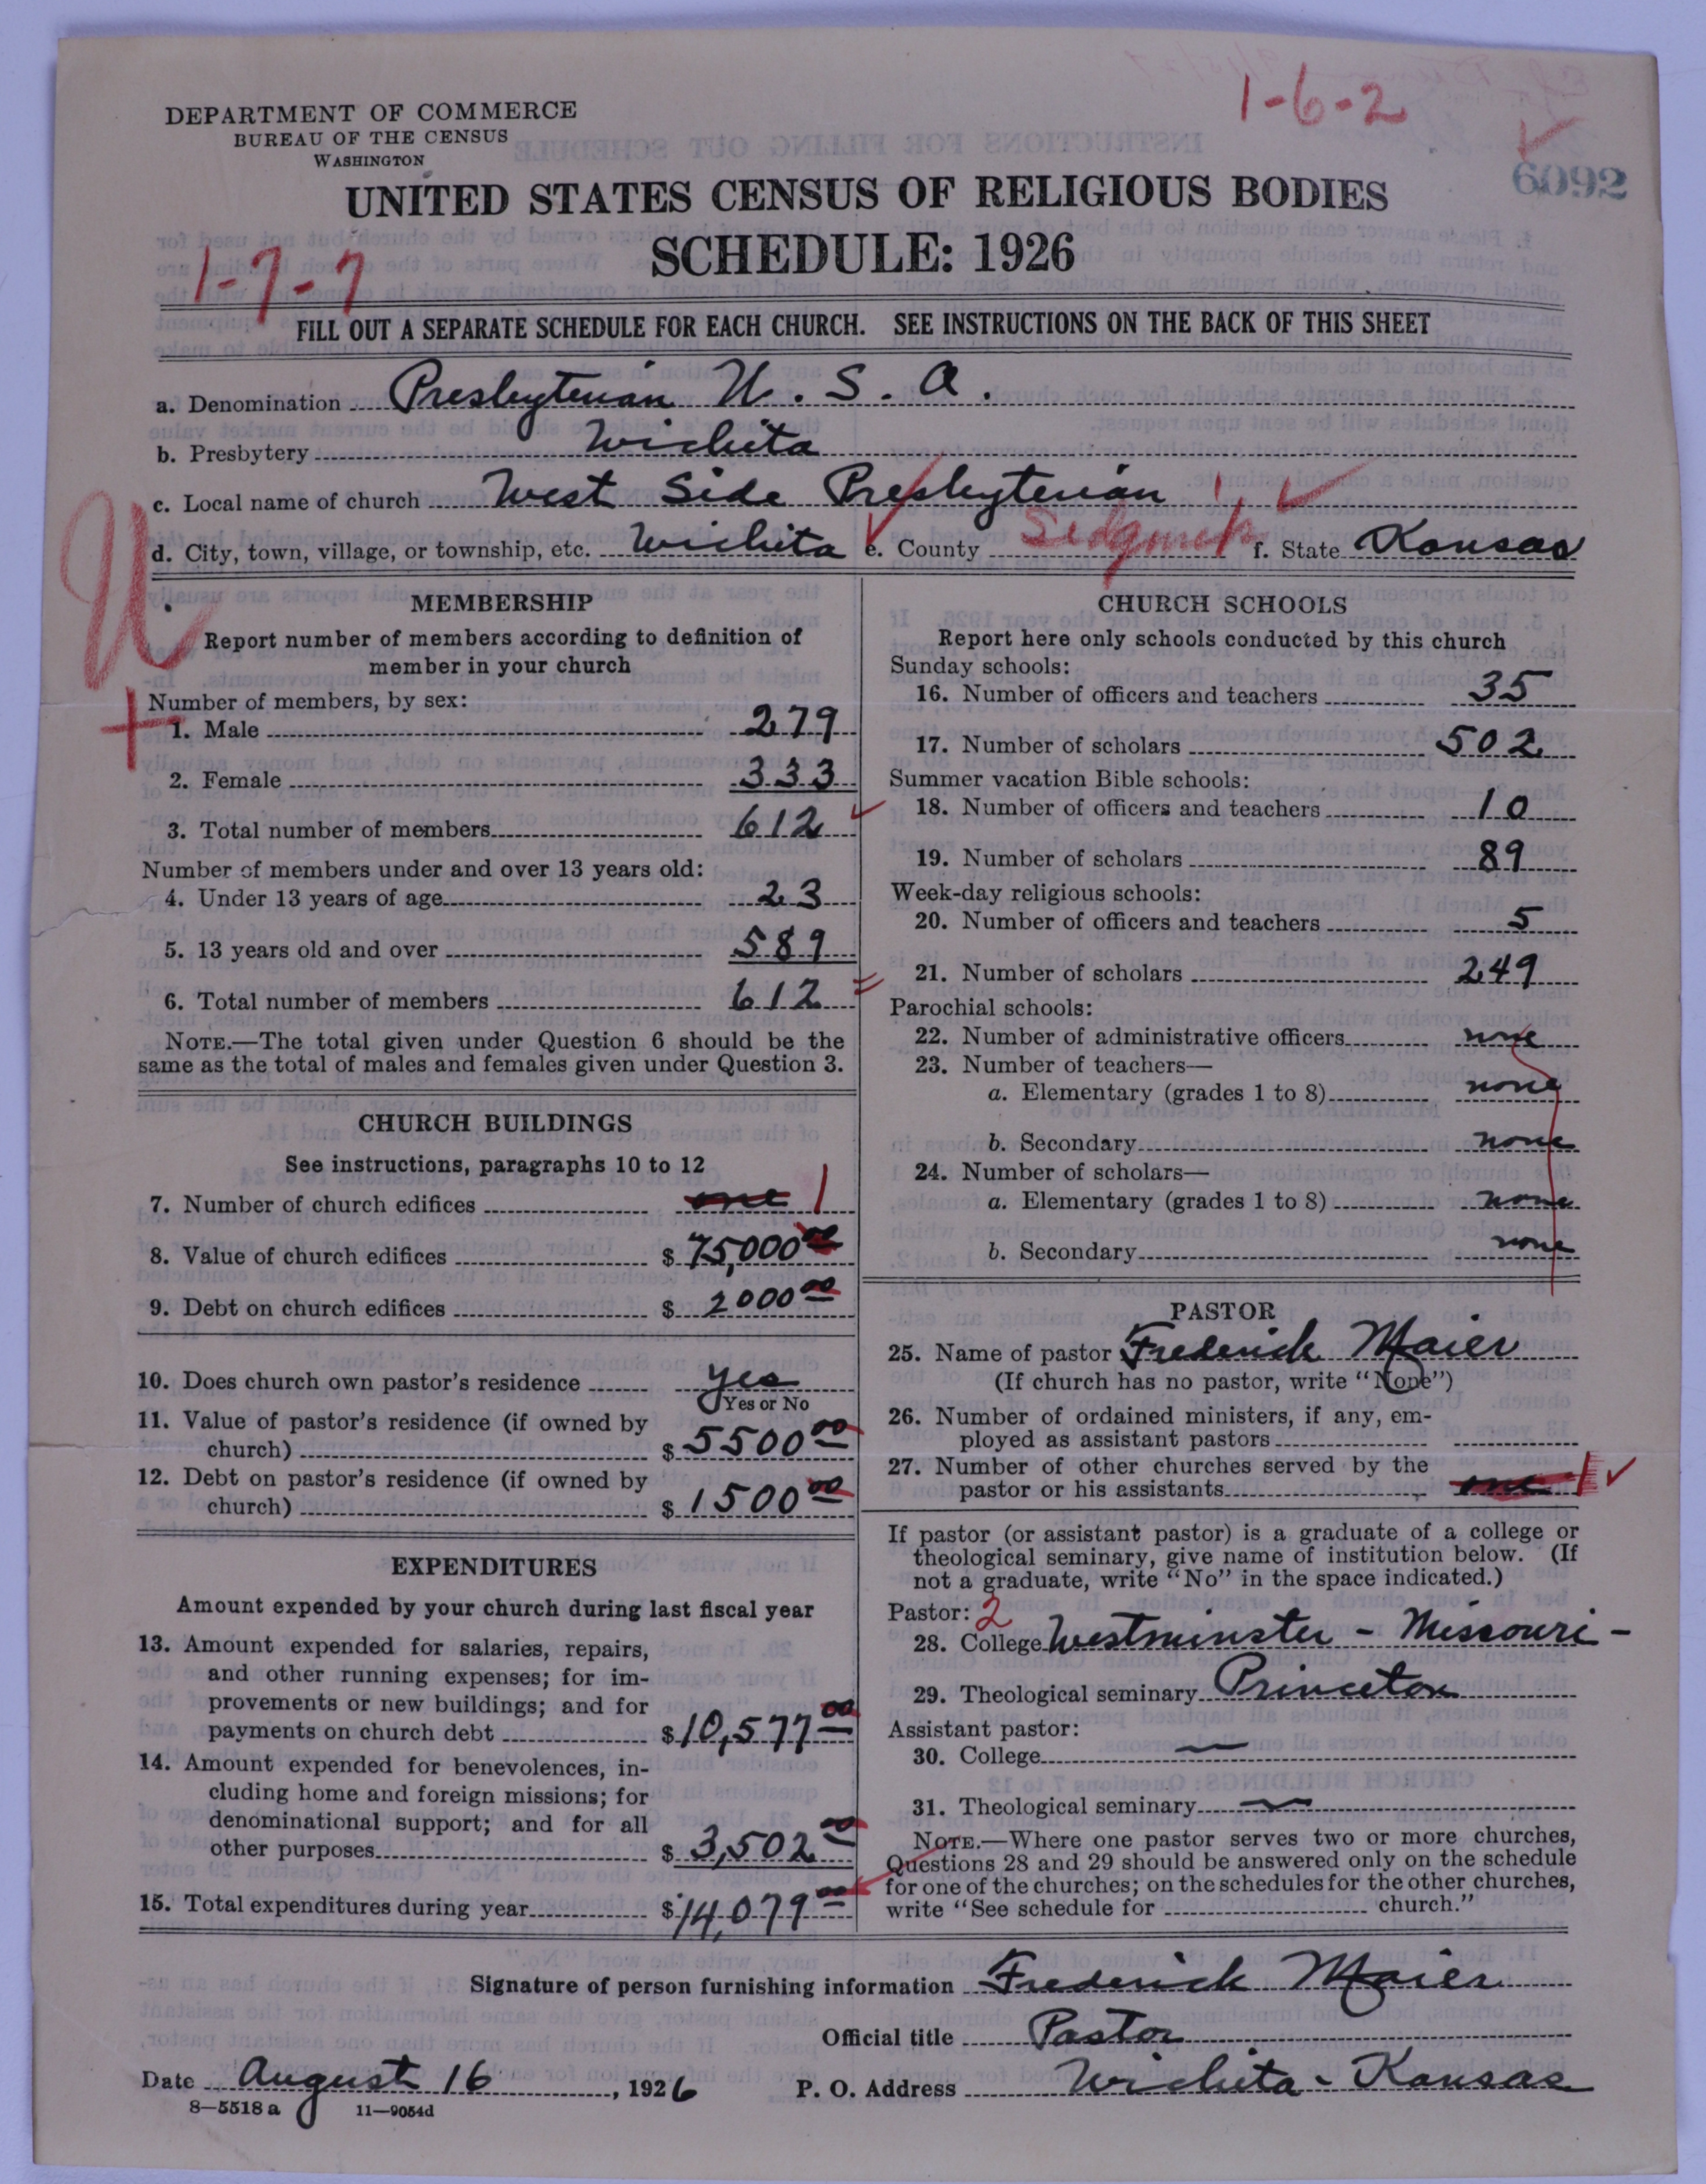 1-6-2
6092
DEPARTMENT OF COMMERCE
BUREAU OF THE CENSUS
WASHINGTON
UNITED STATES CENSUS OF RELIGIOUS BODIES
SCHEDULE: 1926
1-7-7
FILL OUT A SEPARATE SCHEDULE FOR EACH CHURCH. SEE INSTRUCTIONS ON THE BACK OF THIS SHEET
a. Denomination Presbyterian U. S. A.
b. Presbytery Wichita
c. Local name of church West Side Presbyterian
d. City, town, village, or township, etc. Wichita e. County Sedgwick f. State Kansas
U
MEMBERSHIP
Report number of members according to definition of
member in your church
Number of members, by sex:
1. Male 279
2. Female 333
3. Total number of members 612
Number of members under and over 13 years old:
4. Under 13 years of age 23
5. 13 years old and over 589
6. Total number of members 612
NOTE.—The total given under Question 6 should be the
same as the total of males and females given under Question 3.
CHURCH BUILDINGS
See instructions, paragraphs 10 to 12
7. Number of church edifices one 1
8. Value of church edifices $ 75,000 00
9. Debt on church edifices $ 2000 00
10. Does church own pastor's residence yes
Yes or No
11. Value of pastor's residence (if owned by
church) $ 5500 00
12. Debt on pastor's residence (if owned by
church) $ 1500 00
EXPENDITURES
Amount expended by your church during last fiscal year
13. Amount expended for salaries, repairs,
and other running expenses; for im-
provements or new buildings; and for
payments on church debt $ 10,577 00
14. Amount expended for benevolences, in-
cluding home and foreign missions; for
denominational support; and for all
other purposes $ 3,502 00
15. Total expenditures during year $ 14,079 00
CHURCH SCHOOLS
Report here only schools conducted by this church
Sunday schools:
16. Number of officers and teachers 35
17. Number of scholars 502
Summer vacation Bible schools:
18. Number of officers and teachers 10
19. Number of scholars 89
Week-day religious schools:
20. Number of officers and teachers 5
21. Number of scholars 249
Parochial schools:
22. Number of administrative officers none
23. Number of teachers—
a. Elementary (grades 1 to 8) none
b. Secondary none
24. Number of scholars—
a. Elementary (grades 1 to 8) none
b. Secondary none
PASTOR
25. Name of pastor Frederick Maier
(If church has no pastor, write "None")
26. Number of ordained ministers, if any, em-
ployed as assistant pastors
27. Number of other churches served by the
pastor or his assistants one 1
If pastor (or assistant pastor) is a graduate of a college or
theological seminary, give name of institution below. (If
not a graduate, write "No" in the space indicated.)
Pastor: 2
28. College Westminster - Missouri -
29. Theological seminary Princeton
Assistant pastor:
30. College —
31. Theological seminary —
NOTE.—Where one pastor serves two or more churches,
Questions 28 and 29 should be answered only on the schedule
for one of the churches; on the schedules for the other churches,
write "See schedule for church."
Signature of person furnishing information Frederick Maier
Official title Pastor
Date August 16, 1926 P. O. Address Wichita - Kansas
8—5518 a 11—9054d